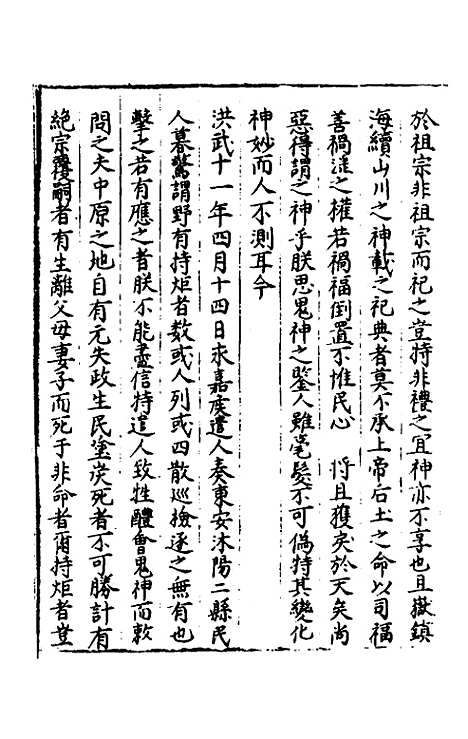 於祖宗非祖宗而祀之豈特非禮之宜神亦不享也且嶽鎮
海瀆山川之神載之祀典者莫不承上帝后土之命以司福
善禍淫之權若禍福倒置不惟民心 將且獲戾於天矣尚
惡得謂之神乎朕思鬼神之鑒人雖毫髮不可偽特其變化
神妙而人不測耳今
洪武十一年四月十四日永嘉侯遣人奏東安沐陽二縣民
人暮驚謂野有持炬者数或人列或四散巡檢逐之無有也
擊之若有應之者朕不能盡信特遣人致牲醴會鬼神而敕
問之夫中原之地自有元失政生民塗炭死者不可勝計有
絶宗覆嗣者有生離父母妻子而死于非命者爾持炬者豈